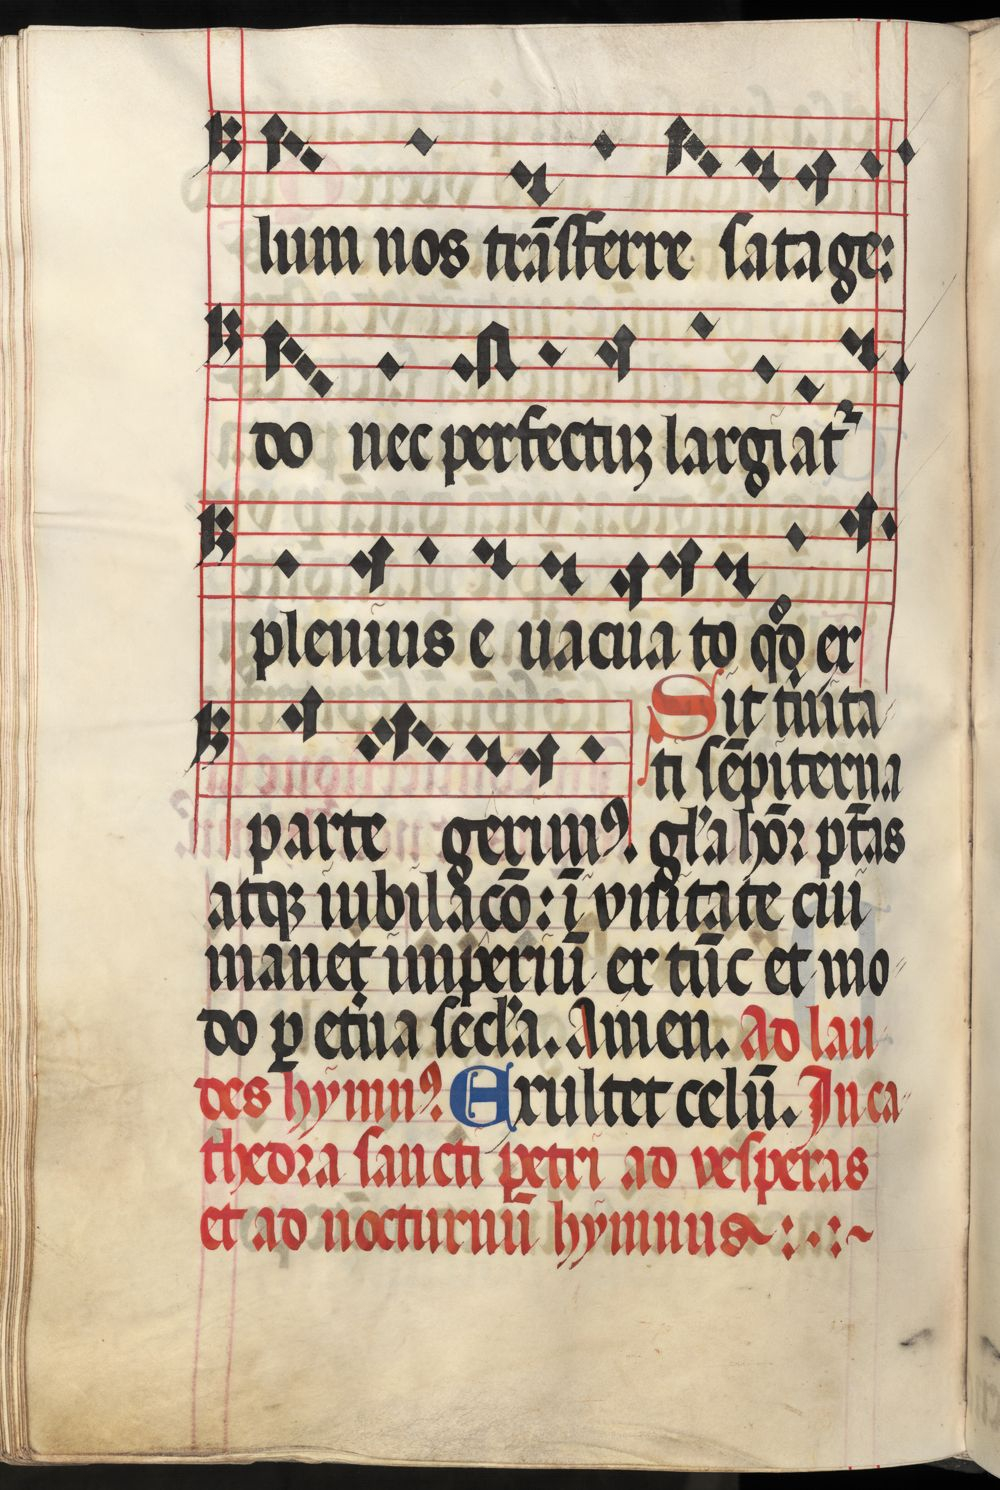 lum nos trāsferre satage:
do nec perfectiꝰ largiat᷑
plenius e uacua to qd̊ ex
parte gerimꝰ.
Sit tinita
ti sēpiterna
gl'a hōꝛ ptās
atqꝫ iubilacō: ī vnitate cui
manet imperiū ex tūc et mo
do ꝑ etn̄a secl'a. Amen. Ad lau
des hȳmnꝰ. Exultet celū. In ca
thedra sancti petri ad vesperas
et ad nocturnū hȳmnus